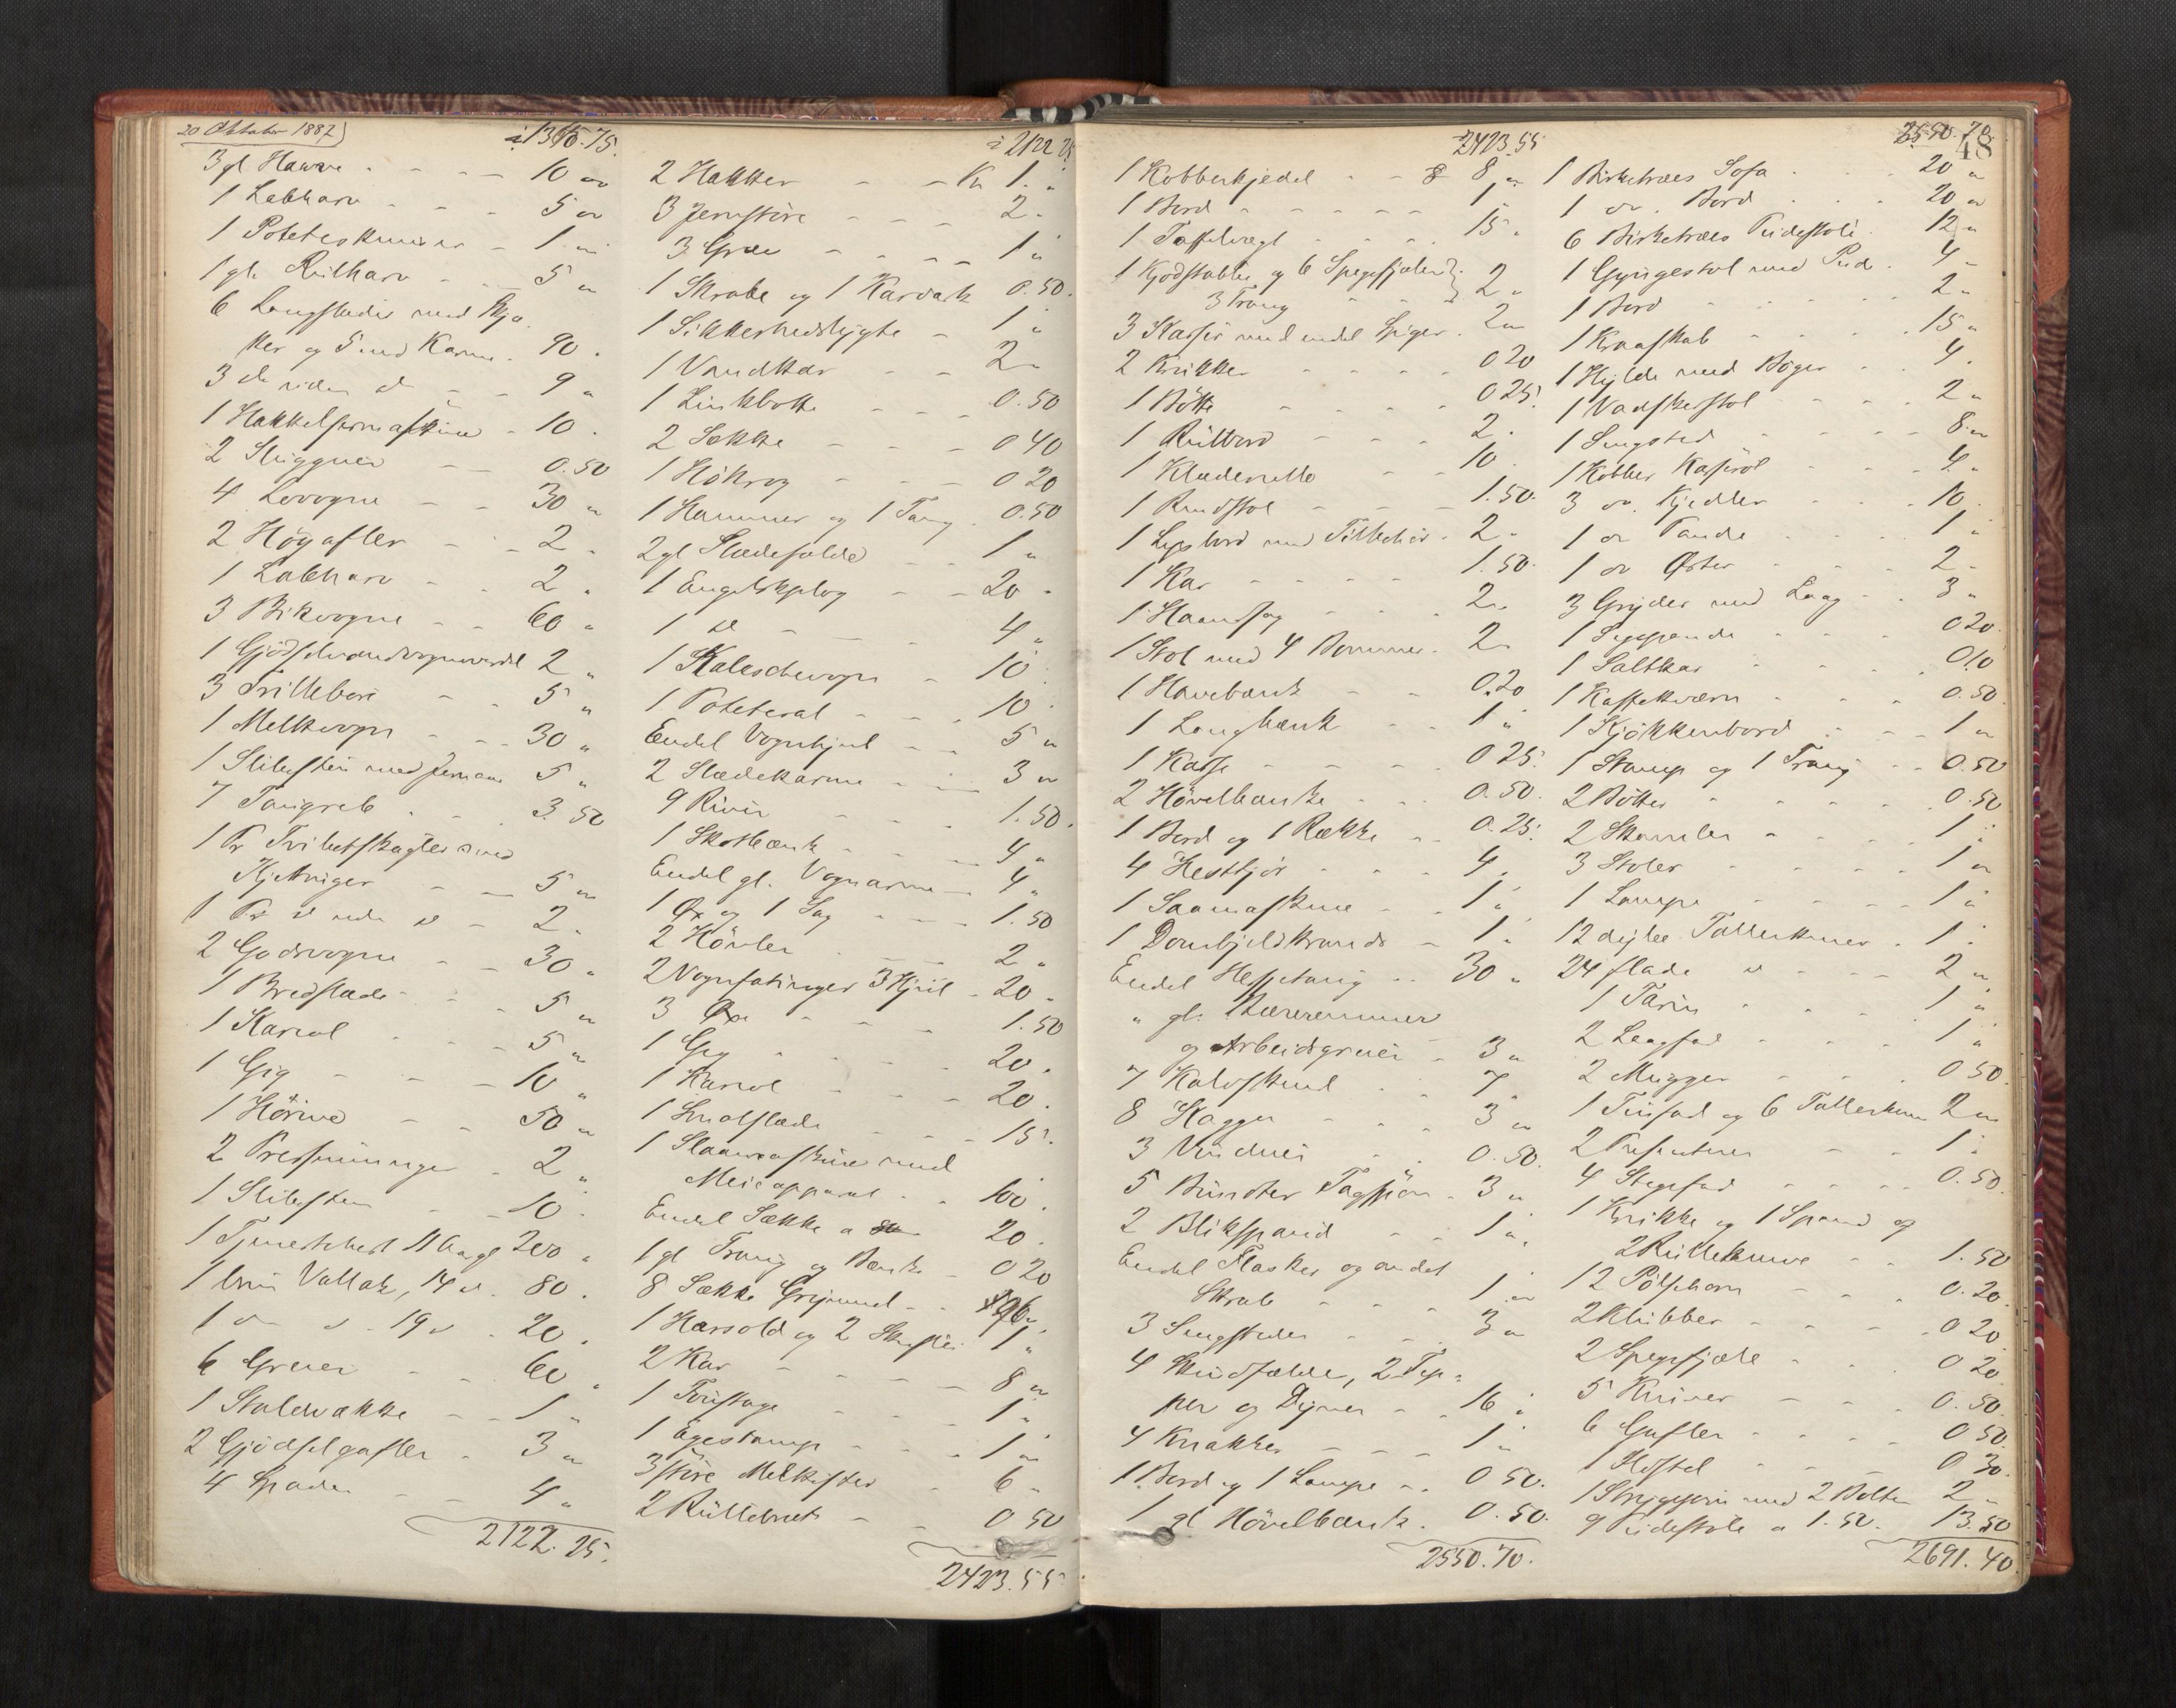 20 Oktober 1887
1315.75.
3 gl Harve - - - 10 "
1 Labharv - - - 5 "
1 - 1 "
1 gl. Rulharv - - 5 "
6 Langslæder med Skja
ker og 5 med Karme. 90.
3 do uden do - 9 "
1 Hakkelsesmaskine - 10.
2 - 0.50
4 Løvogne - - 30 "
2 Høygafler - - 2 "
1 Labharv - 2 "
3 Birkvogne - - 60 "
1 2 "
3 Trillebøre - - 5 "
1 Melkevogn - - 30 "
1 Slibesten med 5 "
7 Tanggreb - - 3.50
1 Pr med
Kjettinger - - 5 "
1 Pr do uden do - 2.
2 Godsvogne - - 30 "
1 Bredslæde - - 5 "
1 Kariol - - 5 "
1 Gig - - - 10 "
1 Hørive - - 50 "
2 Presenninger - 2 "
1 Slibesten - - 10.
1 Tjenestehest 11 Aar gl 200 "
1 brun Vallak, 14 do. 80.
1 do do - 19 do. 20.
6 Gruer - - 60.
1 Staldvække - - 1 "
2 Gjødselgafler - 3 "
4 Spader - - 4 "
2122.25.
2122.25
2 Hakker - - Kr 1. "
3 Jernstøre - - - 2 "
3 Græv - - - 1 "
1 Skrabe og 1 Kardask 0.50.
1 Sikkerhedslygte - 1 "
1 Vandkar - - 2 "
1 Zinkbøtte - - - 0.50
2 Sække - - - 0 40
1 Høkrog - - - 0 20
1 Hammer og 1 Tang. 0.50
2 gl Slædefælde - - 1 "
1 Engelskplog - - 20 "
1 do - - - 4 "
1 Kaleschevogn - 10.
1 - - . 10.
Endel Vognhjul - - 5 "
2 Slædekarme - - 3 "
9 River - - - 1.50.
1 - - - 4 "
Endel gl. Vognarme - 4 "
1 Øx og 1 Sag - - 1.50
2 Høvler - - 2 "
2 3 Hjul - 20 "
3 Øxe - - - 1.50
1 Gig - - - 20.
1 Kariol - - - 20.
1 Smalslæde - - - 15.
1 Slaamaskine med
Meieapparat - - 100.
Endel Sække a 20.
1 gl Traug og Bænk - 0 20
8 Sække Grismel - - 96 "
1 Harsold og 2 1 "
2 Kar - - - 8 "
1 - - - 1 "
1 Egestamp - - - 1 "
3 større Melkefade - 6 "
2 Rullebræt - - 0 50
2423.55
2423.55
1 Kobberkjedel - - 8 "
1 Bord - - - - 1 "
1 Taffelvægt - - - 15 "
1 Kjødstabbe og 6 Spegefjæler
3 Traug - - 2 "
3 Kasser med endel Spiger. 2 "
2 Krukker - - - 0 20
1 Bøtte - - - 0 25.
1 Rulbord - - - 2.
1 Klæderulle - - 10.
1 - - - 1.50.
1 Lysbord med Tilbehør. 2 "
1 Kar - - - - 1.50.
1 Haandsag - - - 2 "
1 Stol med 4 Bommer. 2 "
1 Havebænk - - 0.20
1 Langbænk - - 1 "
1 Kasse - - - 0 25.
2 Høvelbænke - - 0.50.
1 Bord og 1 Række - 0.25.
4 - - - 4 "
1 Saamaskine - - 1 "
1 - 1 "
Endel - - 30 "
" gl. Bæreremmer
og Arbeidsgruer - 3 "
7 Kalvskind - - 7.
8 Hagger - - - 3 "
3 Vinduer - - 0.50.
5 Bundter Tagspøn - 3 "
2 Blikspand - - 1 "
Endel Flasker og andet
Skrab - - - 1 "
3 Sengsteder - - - 3 "
4 Skindfælde, 2 Tep=
per og Dyner - - 16 "
4 Knakker - - - 1 "
1 Bord og 1 Lampe - . 0 50.
1 gl Høvelbænk. 0.50.
2550.70.
2550.70.
48
1 Birketræes Sofa - - - 20 "
1 do. Bord - - - 20 "
6 Birketræes Pudestole. 12 "
1 Gyngestol med Pude. 4 "
1 Bord - - - 2 "
1 Kraaskab - - - 15 "
1 Hylde med Bøger - - 4.
1 Vadskestol - - - 2 "
1 Sengsted - - - 8 "
1 Kobber Kasserol - - 4 "
3 do. Kjedler - - - 10.
1 do Pande - - - 1 "
1 do Øster - - - 2 "
3 Gryder med Laag - - 3 "
1 - - - 0 20.
1 Saltkar - - - 0.10
1 Kaffekværn - - - 0.50
1 Kjøkkenbord - - - 1 "
1 Stamp og 1 Traug - - 0.50
2 Bøtter - - - - 0.50
2 Skamler - - - 1 "
3 Stoler - - - 1 "
1 Lampe - - - 1 "
12 dybe Tallerkener. 1 "
24 flade do - - - 2 "
1 Tarin - - - 1 "
2 Laagfad - - - 1 "
2 Mugger - - - 0 50.
1 Tinfad og 6 Tallerkener 2 "
2 - - 1 "
4 Stegefad - - - 0.50.
1 Krukke og 1 Spand og
2 - - 1.50
12 Pølsehorn - - - 0.20.
2 Klubber - - - 0 20
2 Spegefjæle - - 0 20
5 Kniver - - - 0.50.
6 Gafler - - - - 0 50.
1 - - - 0 30.
1 Strygejern med 2 Bolter 2 "
9 Pudestole a 1.50. 13.50
2691.40.